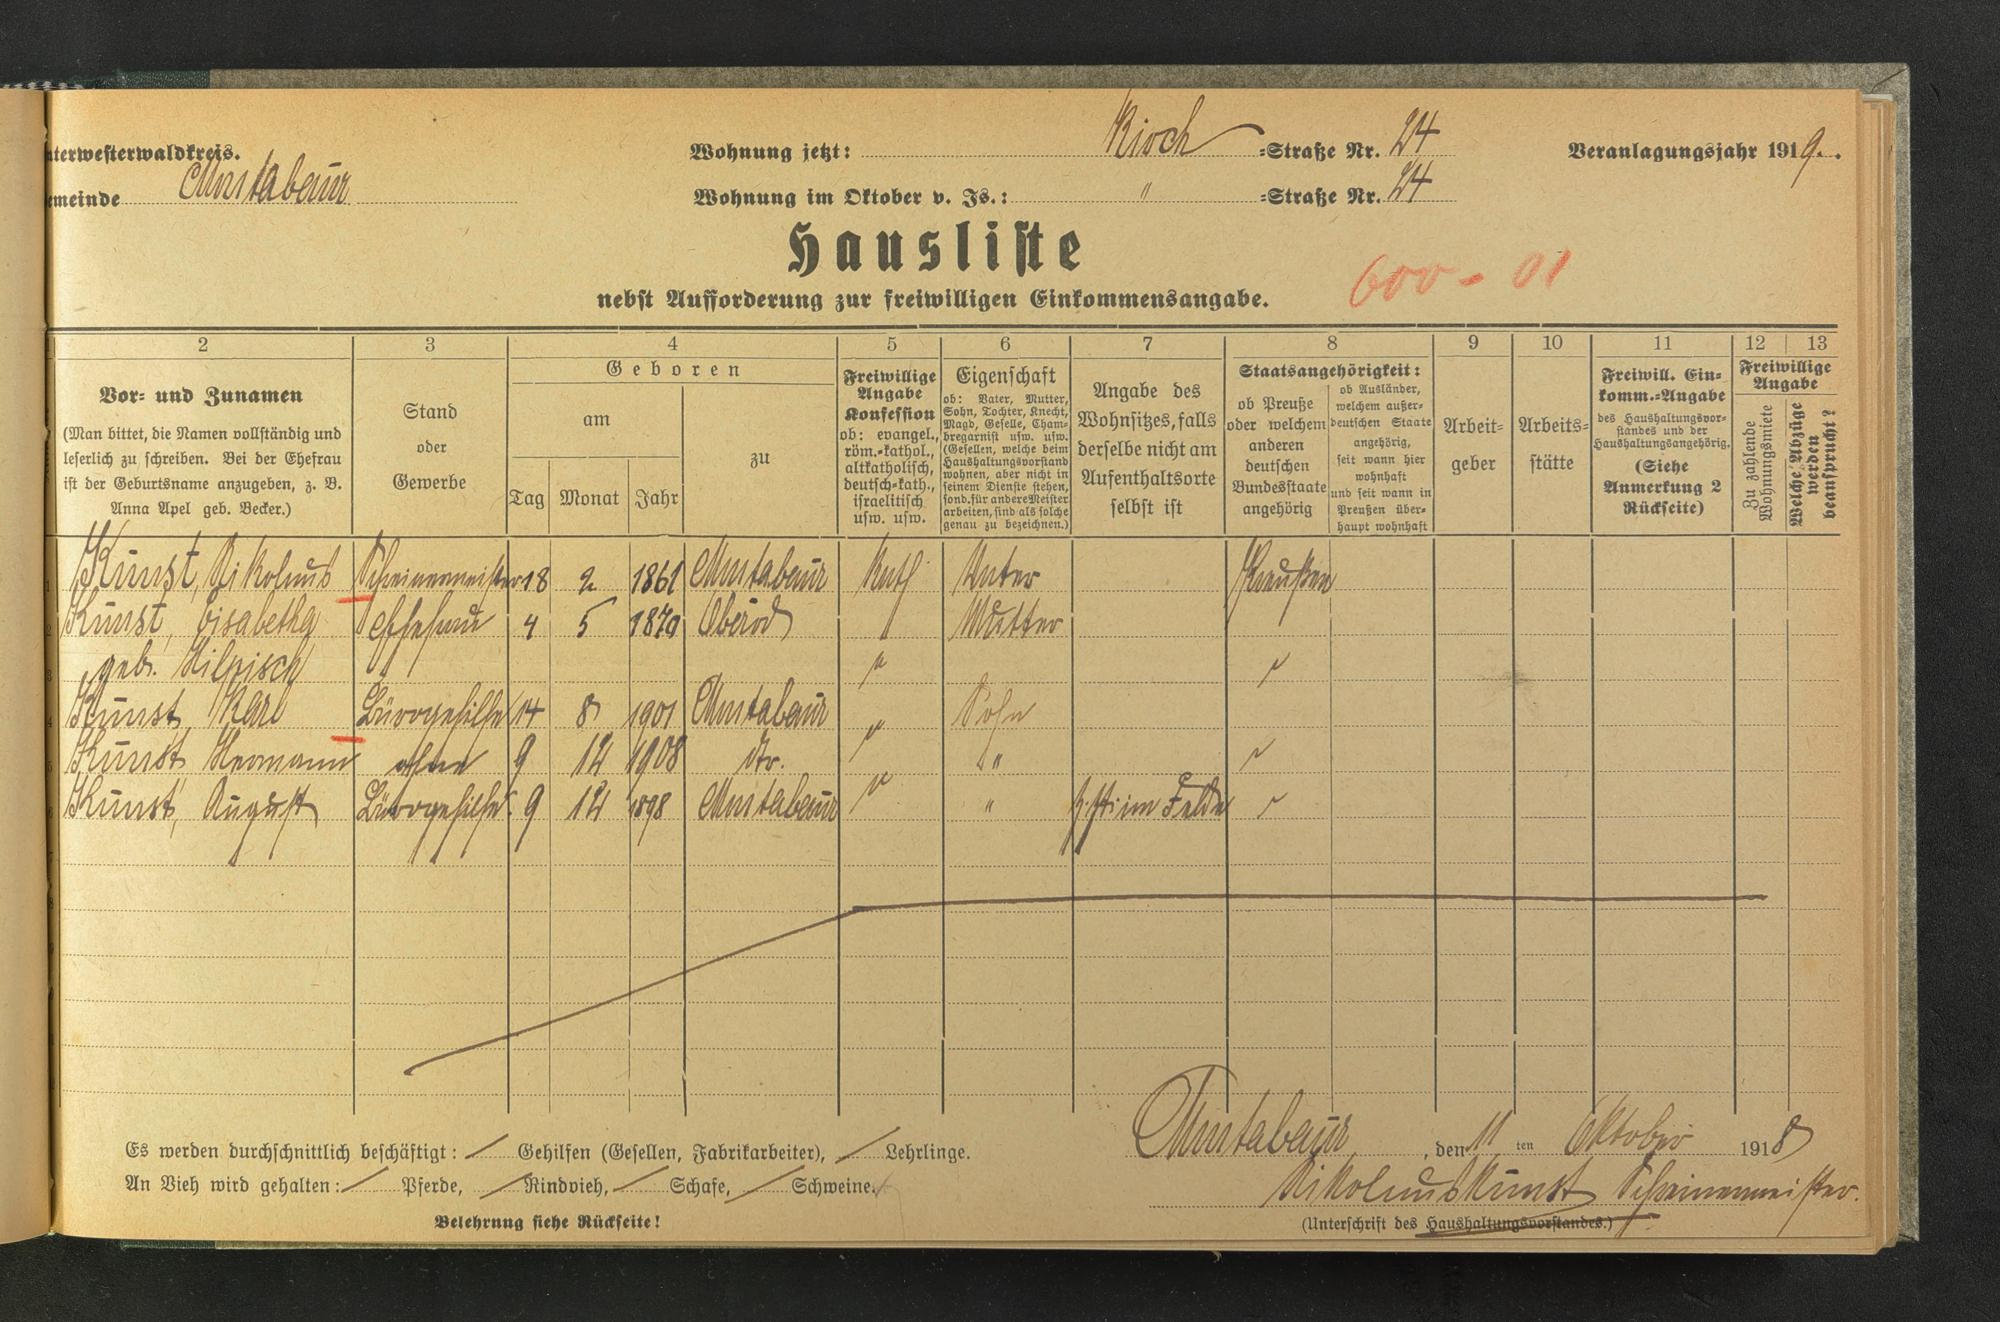 nterwesterwaldkreis.
Wohnung jetzt: Kirch =Straße Nr. 24
Veranlagungsjahr 1919.
emeinde Montabaur
Wohnung im Oktober v. Js.: " =Straße Nr. 24
Hausliste
nebst Aufforderung zur freiwilligen Einkommensangabe.
600 - 01
2 3 4 5 6 7 8 9 10 11 12 13
Vor- und Zunamen
(Man bittet, die Namen vollständig und
leserlich zu schreiben. Bei der Ehefrau
ist der Geburtsname anzugeben, z. B.
Anna Apel geb. Becker.)
Stand
oder
Gewerbe
Geboren
am
Tag Monat Jahr
zu
Freiwillige
Angabe
Konfession
ob: evangel.,
röm.-kathol.,
altkatholisch,
deutsch-kath.,
israelitisch
usw. usw.
Eigenschaft
ob: Vater, Mutter,
Sohn, Tochter, Knecht,
Magd, Geselle, Cham-
bregarnist usw. usw.
(Gesellen, welche beim
Haushaltungsvorstand
wohnen, aber nicht in
seinem Dienste stehen,
sond. für andere Meister
arbeiten, sind als solche
genau zu bezeichnen.)
Angabe des
Wohnsitzes, falls
derselbe nicht am
Aufenthaltsorte
selbst ist
Staatsangehörigkeit:
ob Preuße
oder welchem
anderen
deutschen
Bundesstaate
angehörig
ob Ausländer,
welchem außer-
deutschen Staate
angehörig,
seit wann hier
wohnhaft
und seit wann in
Preußen über-
haupt wohnhaft
Arbeit-
geber
Arbeits-
stätte
Freiwill. Ein-
komm.-Angabe
des Haushaltungsvor-
standes und der
Haushaltungsangehörig.
(Siehe
Anmerkung 2
Rückseite)
Freiwillige
Angabe
Zu zahlende
Wohnungsmiete
Welche Abzüge
werden
beansprucht?
1 Kunst, Nikolaus Schreinermeister 18 2 1861 Montabaur Kath Vater Preußen
2 Kunst, Elisabetha Ehefrau 4 5 1870 Oberod " Mutter
3 geb. Hilpisch " "
4 Kunst, Karl Bürogehilfe 14 8 1901 Montabaur " Sohn
5 Kunst Hermann ohne 9 12 1908 dto. " "
6 Kunst, August Bürogehilfe 9 12 1898 Montabaur " " z. Zt. im Felde "
7
8
9
Es werden durchschnittlich beschäftigt: / Gehilfen (Gesellen, Fabrikarbeiter), / Lehrlinge.
An Vieh wird gehalten: / Pferde, / Rindvieh, / Schafe, / Schweine.
Belehrung siehe Rückseite!
Montabaur, den 11 ten Oktober 1918
Nikolaus Kunst Schreinermeister.
(Unterschrift des Haushaltungsvorstandes.)